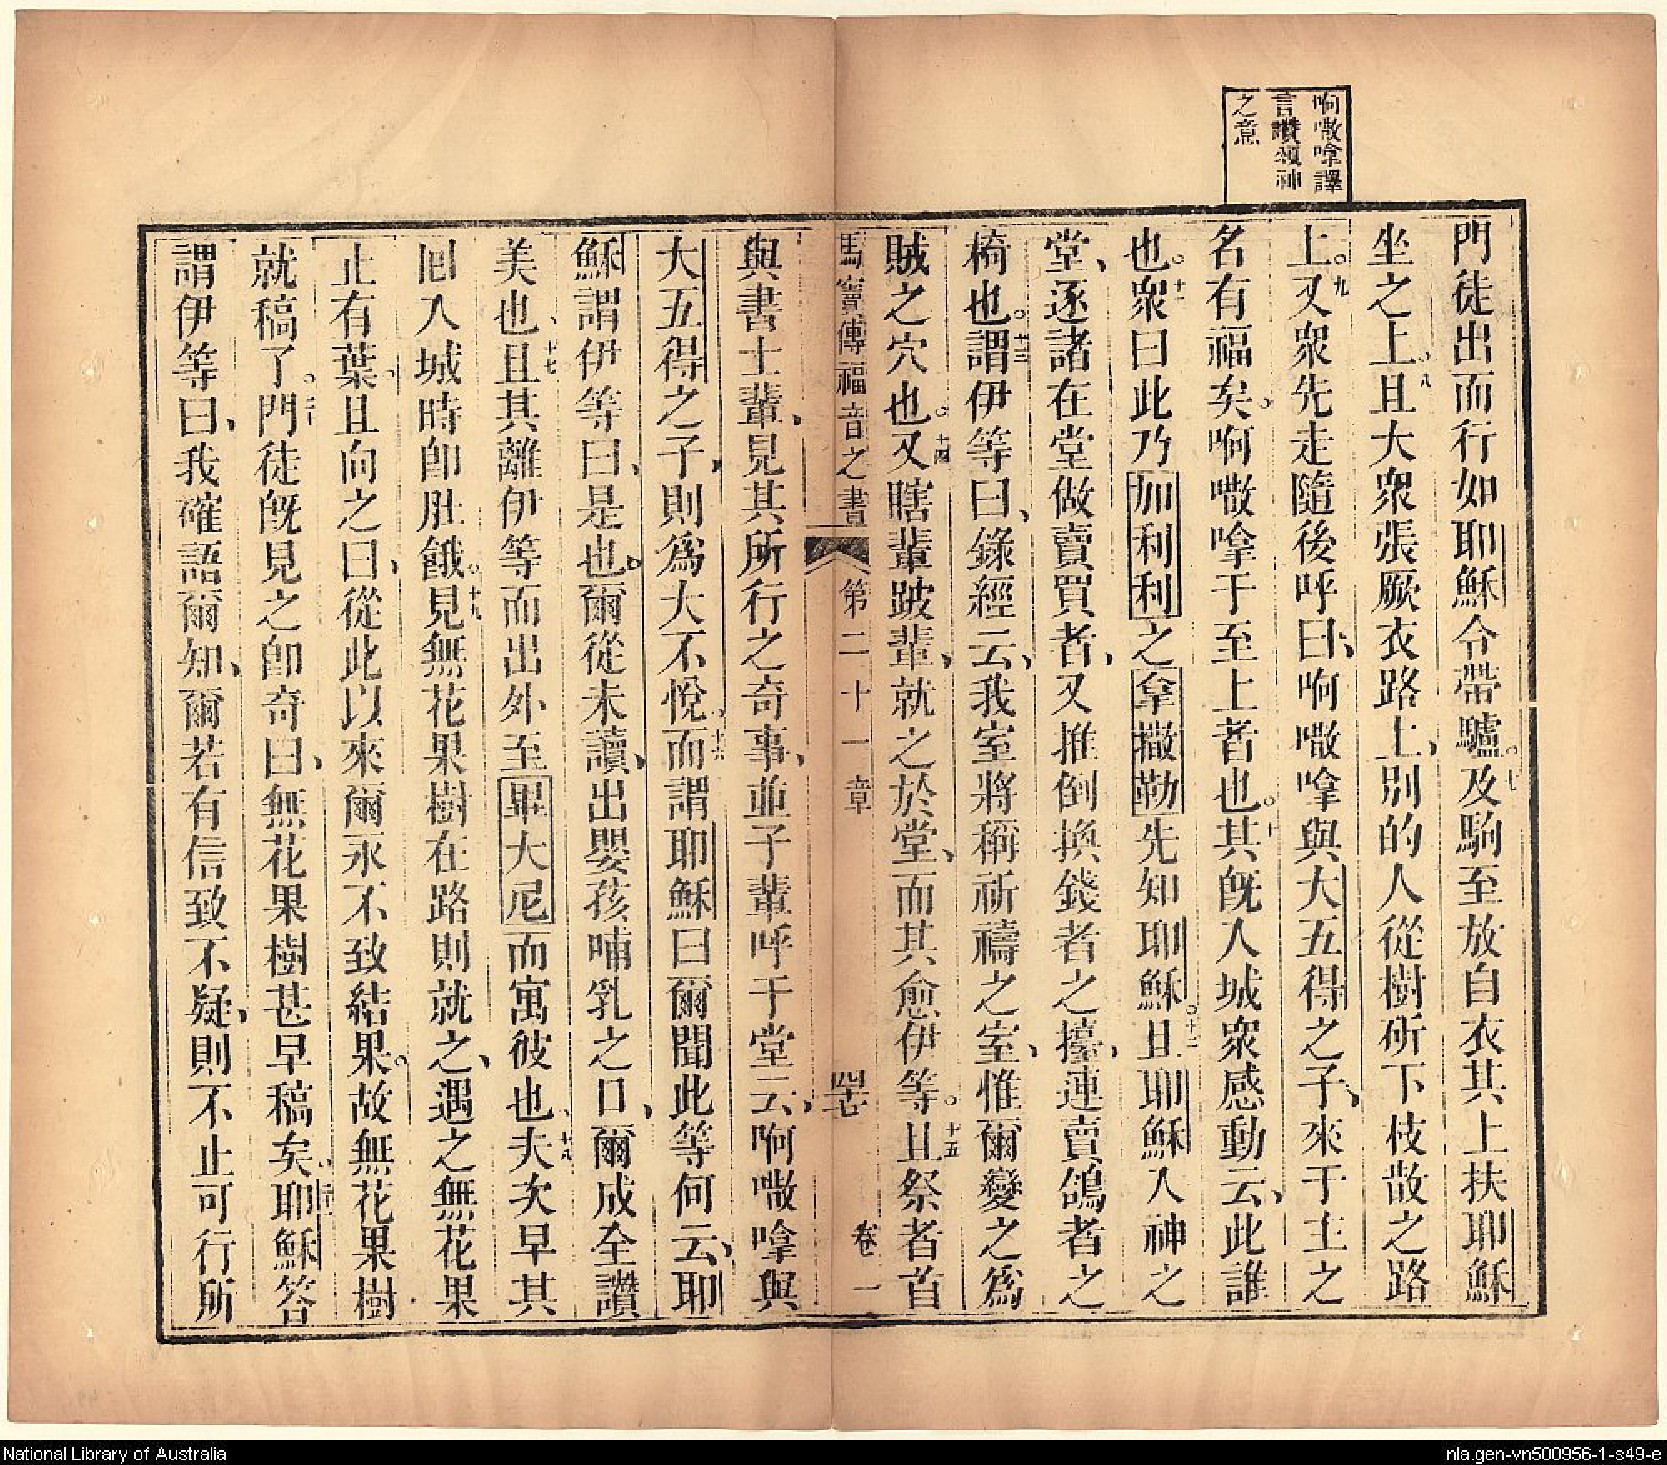 啊㗐嗱譯
言讚頌神
之意
門徒出而行如耶穌令帶驢。七及駒至放自衣其上扶耶穌
坐之上。八且大衆張厥衣路上、別的人從樹斫下枝散之路
上。九又衆先走隨後呼曰、啊㗐嗱與大五得之子、來于主之
名有福矣。啊㗐嗱于至上者也。十其旣入城衆感動云、此誰
也。十一衆曰此乃加利利之拿撒勒先知耶穌。十二且耶穌入神之
堂、逐諸在堂做賣買者、又推倒換錢者之擡、連賣鴿者之
椅也。十三謂伊等曰、錄經云、我室將稱祈禱之室、惟爾變之爲
賊之穴也。十四又瞎輩跛輩、就之於堂、而其愈伊等。十五且祭者首
馬竇傳福音之書 第二十一章 四十七 卷一
與書士輩、見其所行之奇事、並子輩呼于堂云、啊㗐嗱與
大五得之子、則爲大不悅。十六而謂耶穌曰爾聞此等何云、耶
穌謂伊等曰、是也。爾從未讀、出嬰孩哺乳之口、爾成全讚
美也、十七且其離伊等而出外至畢大尼而寓彼也、十八夫次早其
囘入城時卽肚餓。十九見無花果樹在路則就之、遇之無花果
止有葉。且向之曰、從此以來爾永不致結果。故無花果樹
就稿了。二十門徒旣見之卽奇曰、無花果樹甚早稿矣。二十一耶穌答
謂伊等曰、我確語爾知、爾若有信致不疑、則不止可行所
National Library of Australia
nla.gen-vn500956-1-s49-e